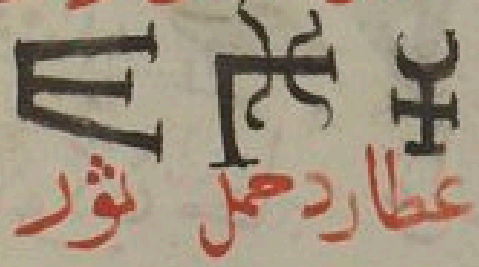 عطارد حمل ثور